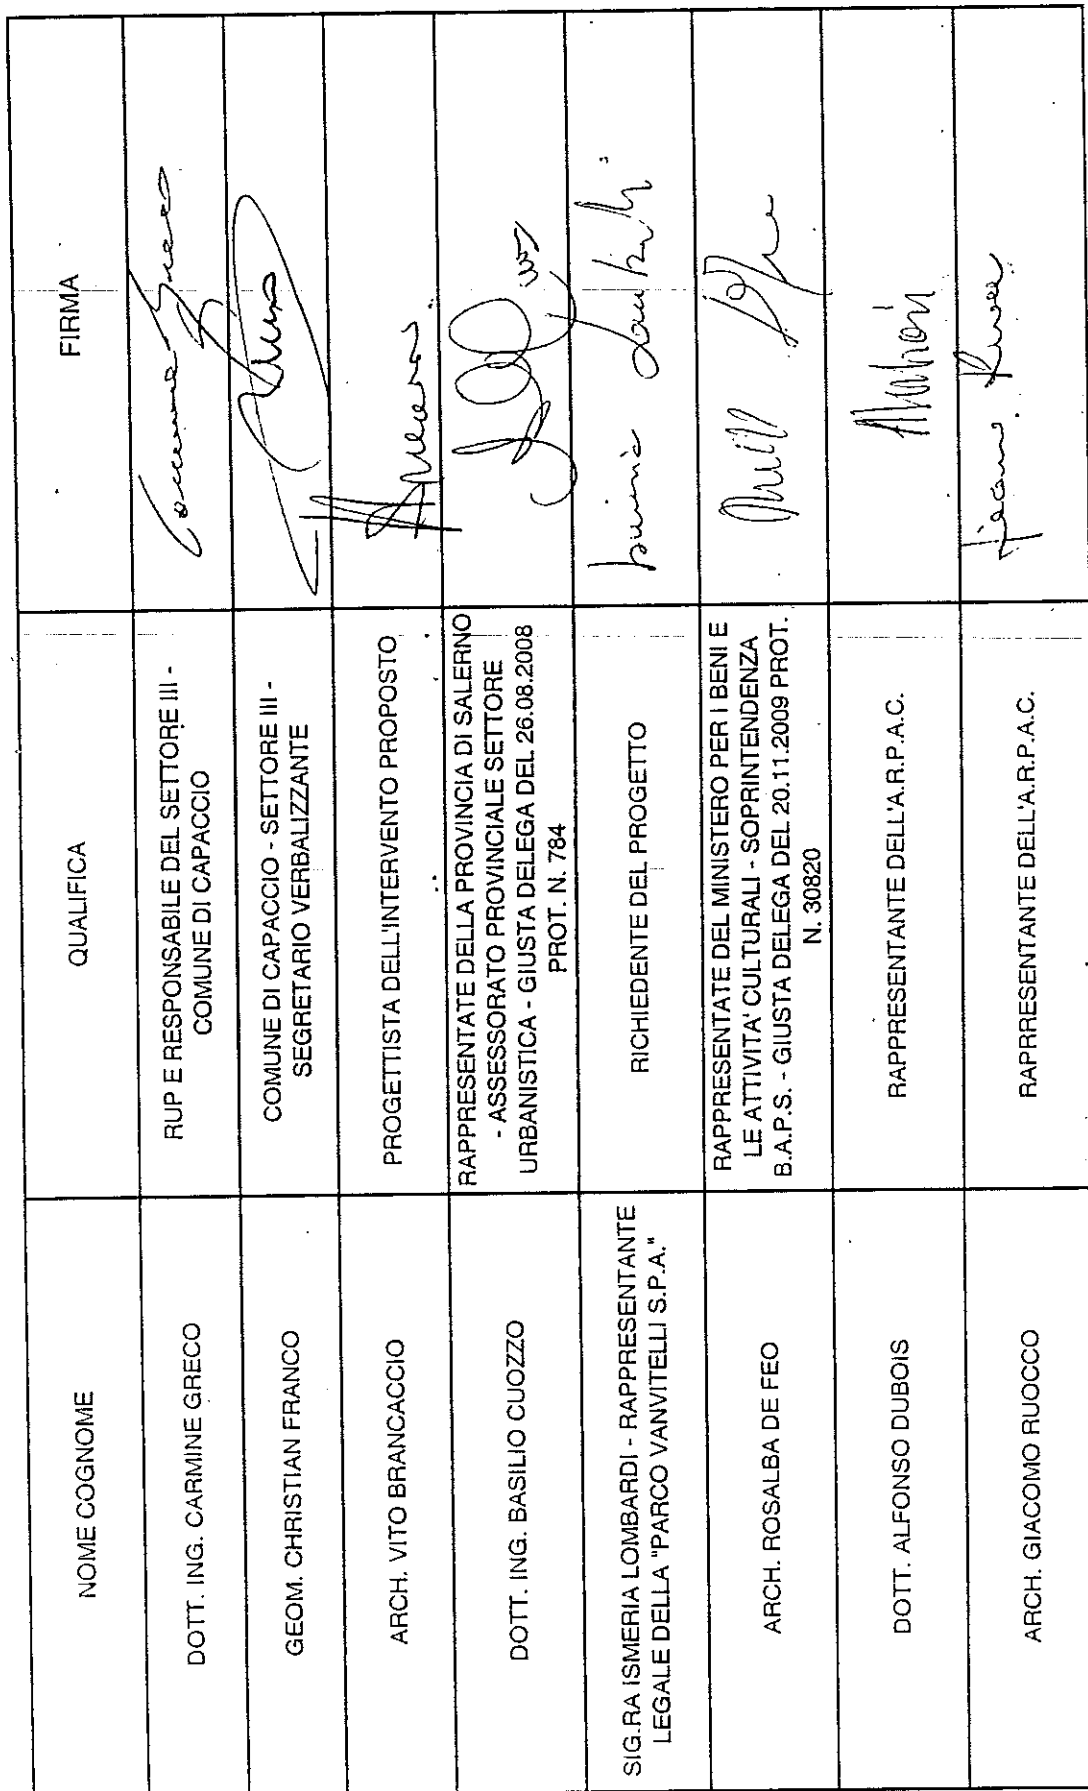 NOME COGNOME
QUALIFICA
FIRMA
DOTT. ING. CARMINE GRECO
RUP E RESPONSABILE DEL SETTORE III -
COMUNE DI CAPACCIO
GEOM. CHRISTIAN FRANCO
COMUNE DI CAPACCIO - SETTORE III -
SEGRETARIO VERBALIZZANTE
ARCH. VITO BRANCACCIO
PROGETTISTA DELL'INTERVENTO PROPOSTO
DOTT. ING. BASILIO CUOZZO
RAPPRESENTATE DELLA PROVINCIA DI SALERNO
- ASSESSORATO PROVINCIALE SETTORE
URBANISTICA - GIUSTA DELEGA DEL 26.08.2008
PROT. N. 784
SIG.RA ISMERIA LOMBARDI - RAPPRESENTANTE
LEGALE DELLA "PARCO VANVITELLI S.P.A."
RICHIEDENTE DEL PROGETTO
ARCH. ROSALBA DE FEO
RAPPRESENTATE DEL MINISTERO PER I BENI E
LE ATTIVITA' CULTURALI - SOPRINTENDENZA
B.A.P.S. - GIUSTA DELEGA DEL 20.11.2009 PROT.
N. 30820
DOTT. ALFONSO DUBOIS
RAPPRESENTANTE DELL'A.R.P.A.C.
ARCH. GIACOMO RUOCCO
RAPRRESENTANTE DELL'A.R.P.A.C.